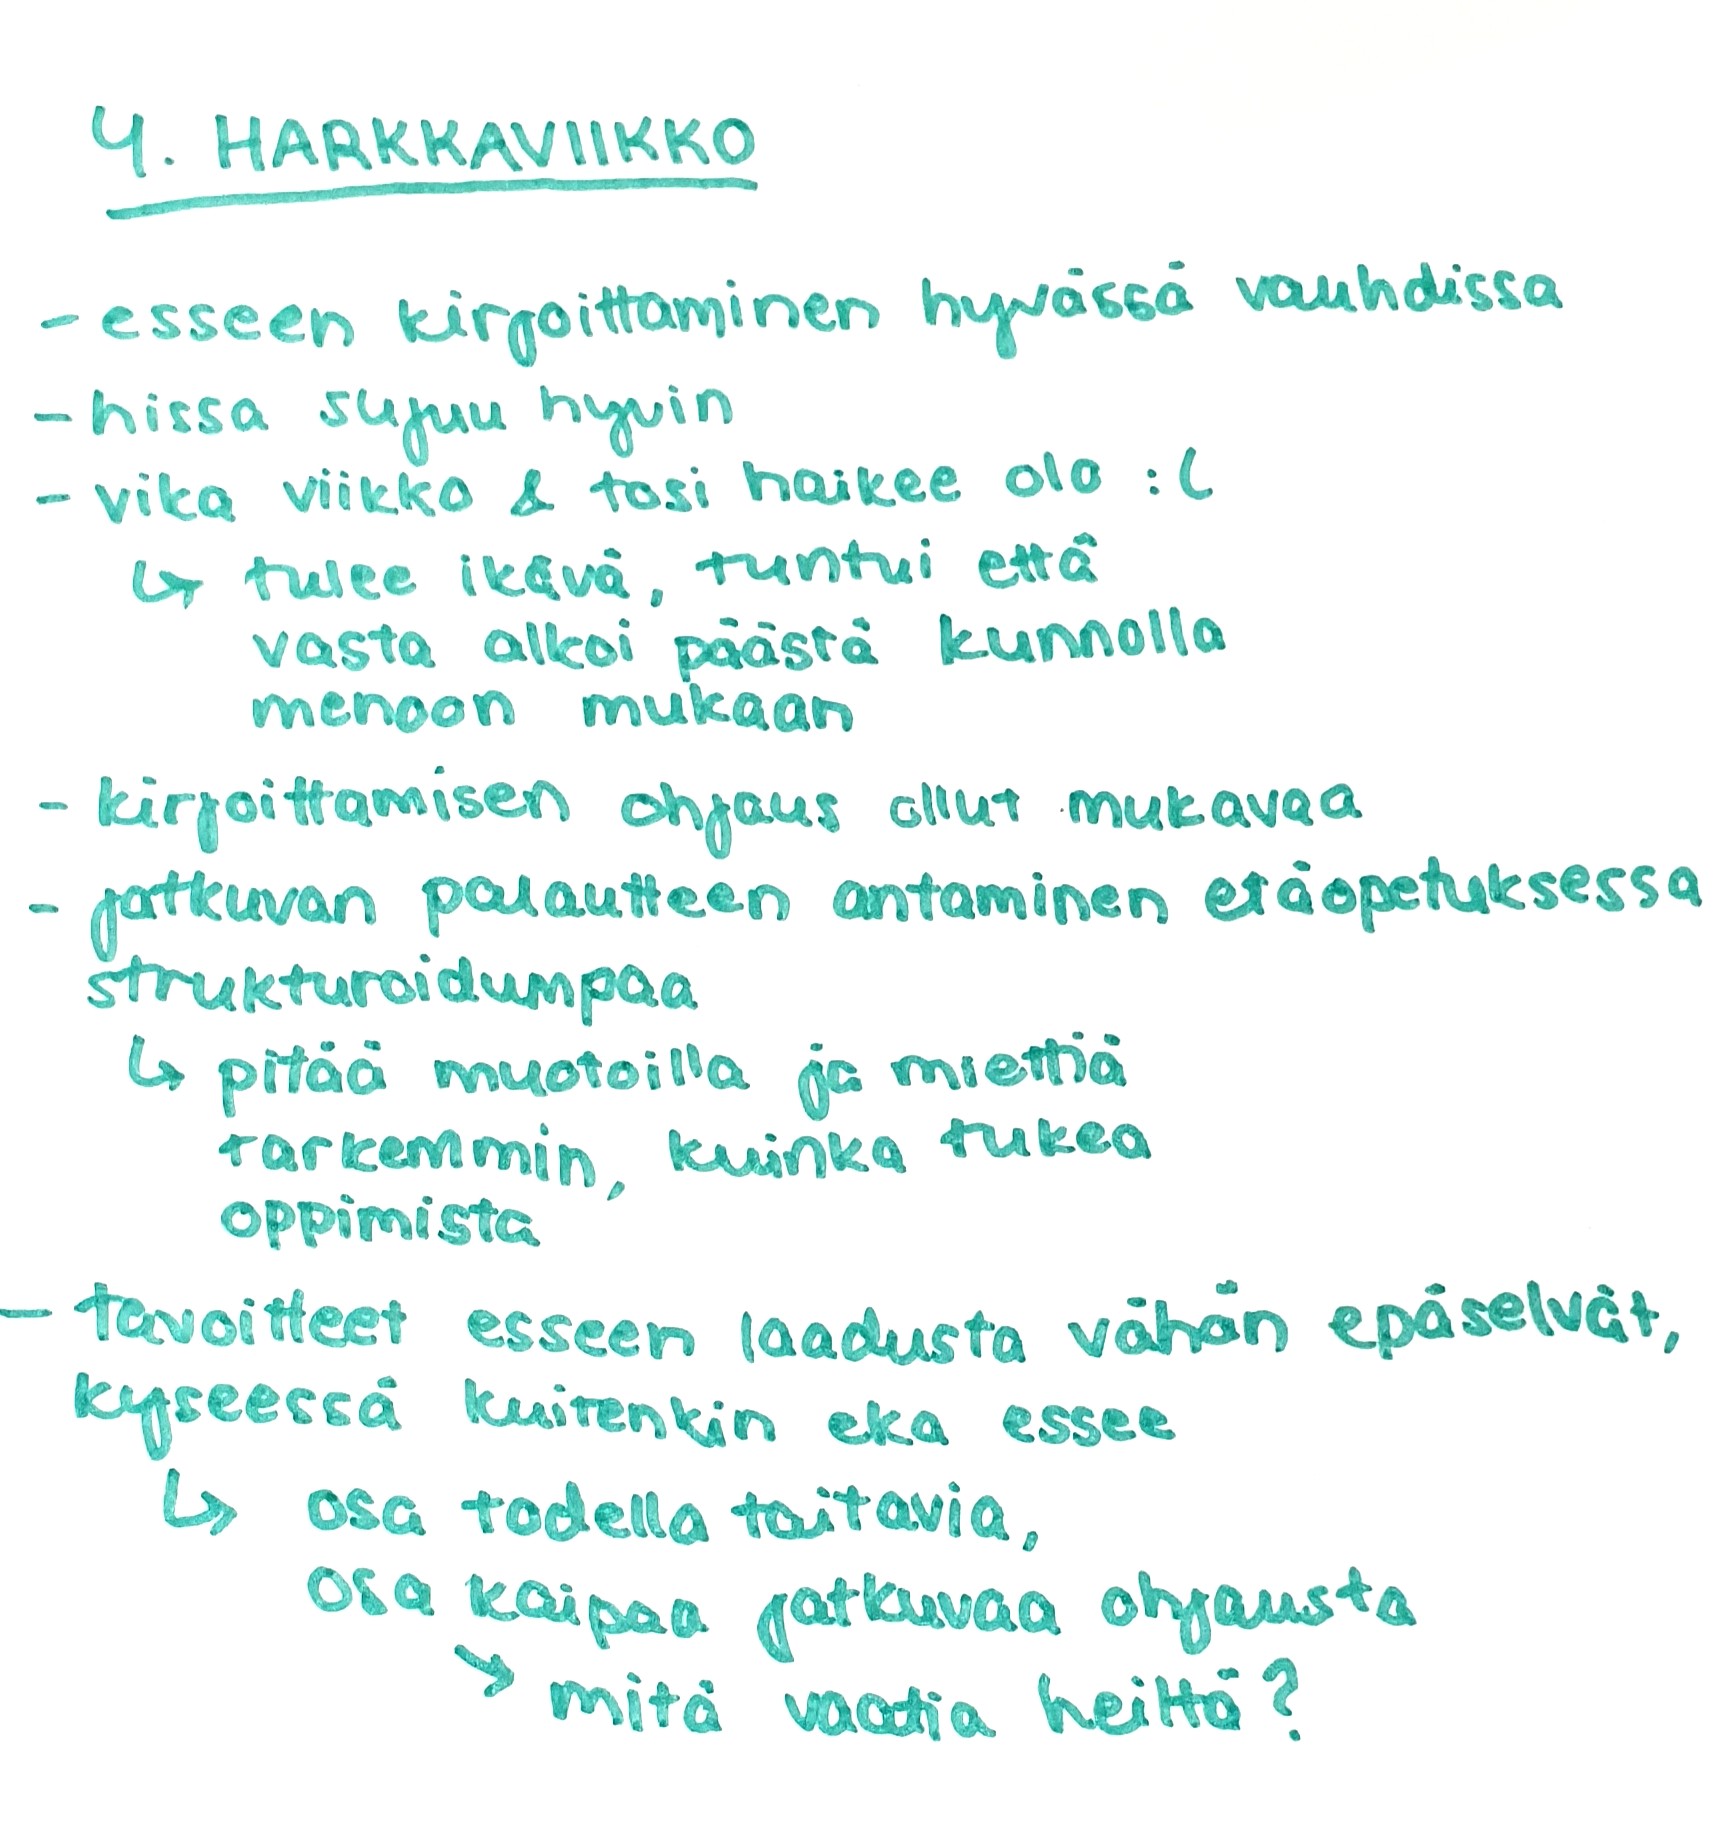 4. HARKKAVIIKKO
- esseen kirjoittaminen hyvässä vauhdissa
- hissa sujuu hyvin
- vika viikko & tosi haikee olo :(
↳ tulee ikävä, tuntui että
vasta alkoi päästä kunnolla
menoon mukaan
- kirjoittamisen ohjaus ollut mukavaa
- jatkuvan palautteen antaminen etäopetuksessa
strukturoidumpaa
↳ pitää muotoilla ja miettiä
tarkemmin, kuinka tukea
oppimista
- tavoitteet esseen laadusta vähän epäselvät,
kyseessä kuitenkin eka essee
↳ osa todella taitavia,
osa kaipaa jatkuvaa ohjausta
→ mitä vaatia heiltä?